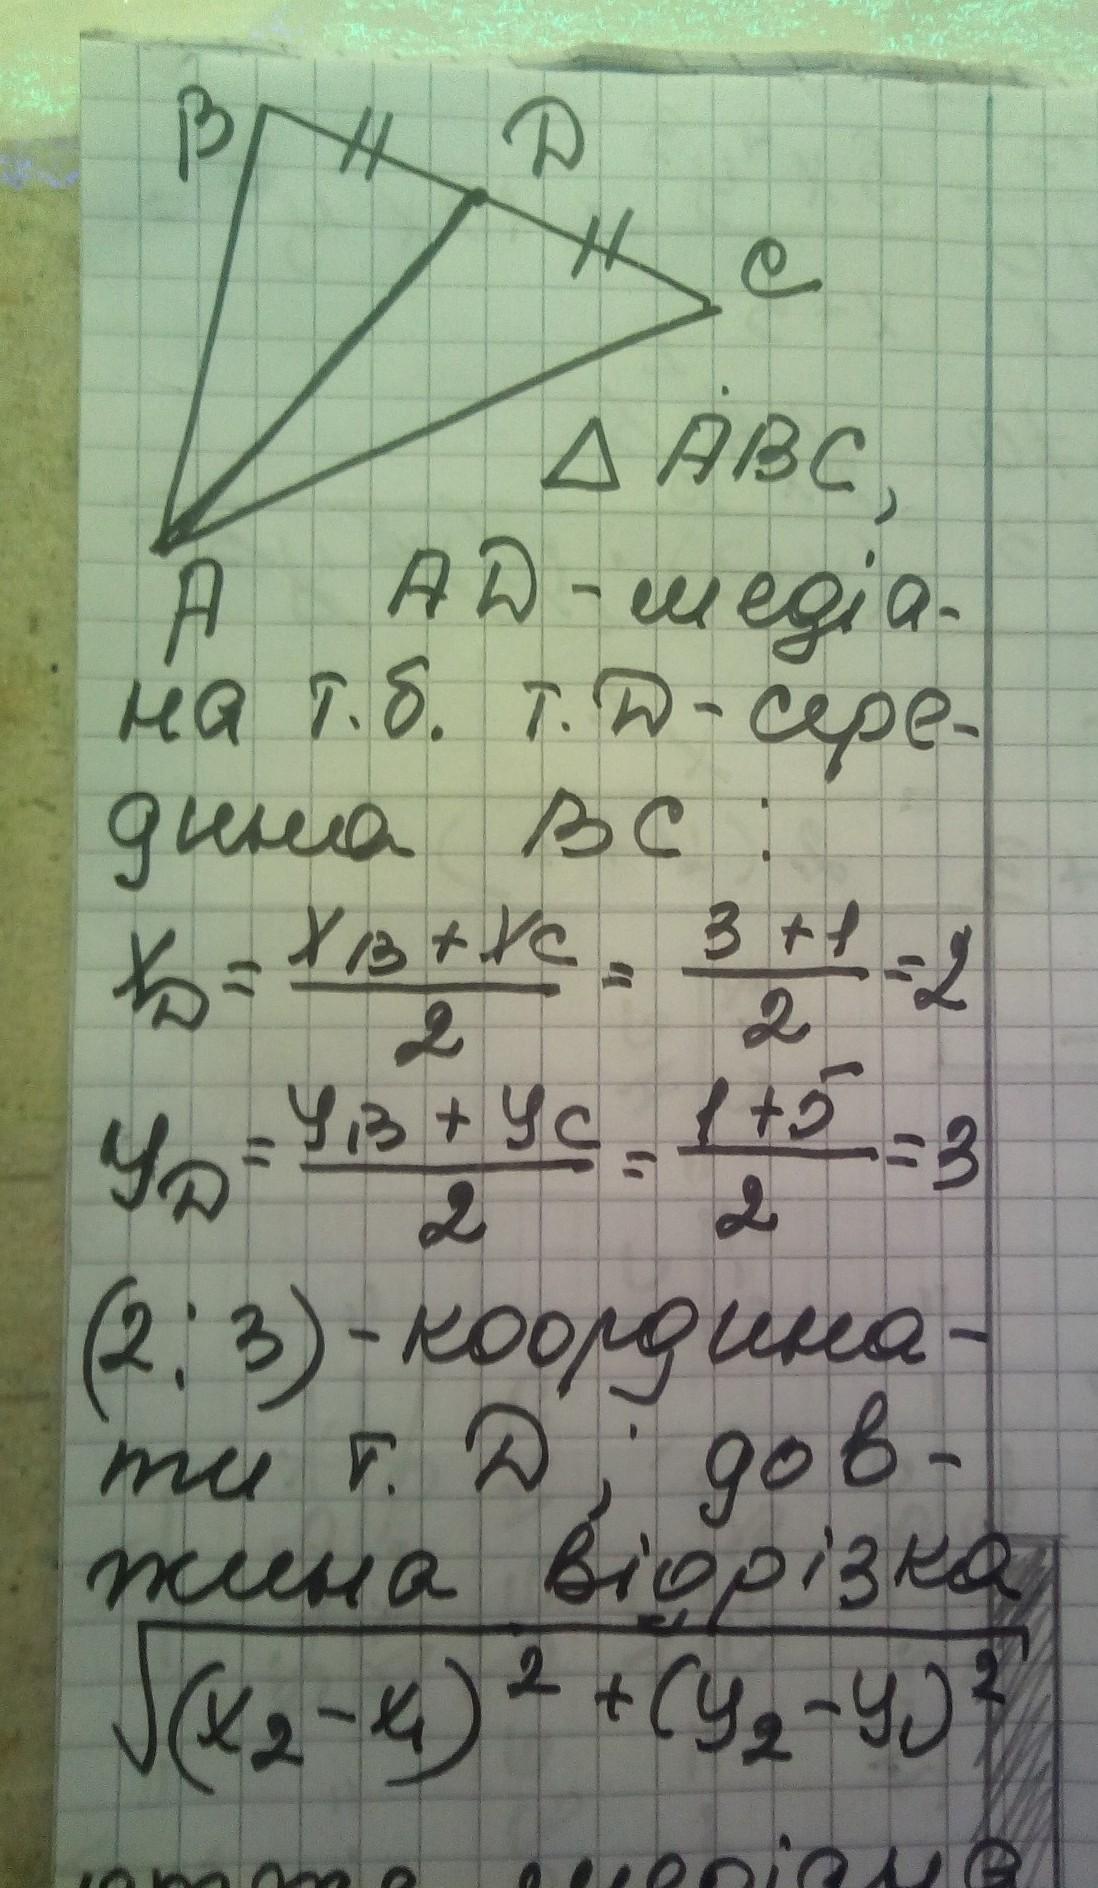 B D
C
△ ABC,
A AD - медіа-
на т.б. т. D - сере-
дина BC :
x_D = (x_B + x_C)/2 = (3 + 1)/2 = 2
y_D = (y_B + y_C)/2 = (1 + 5)/2 = 3
(2; 3) - координа-
ти т. D; дов-
жина відрізка
√((x₂ - x₁)² + (y₂ - y₁)²
медіана